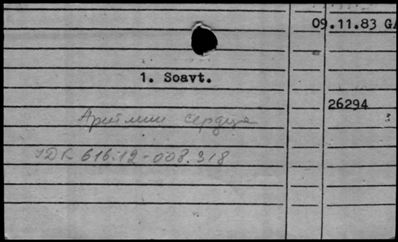 09.11.83 GA
1. Soavt.
26294
Аритмии сердца
УДК 616.12-008.318